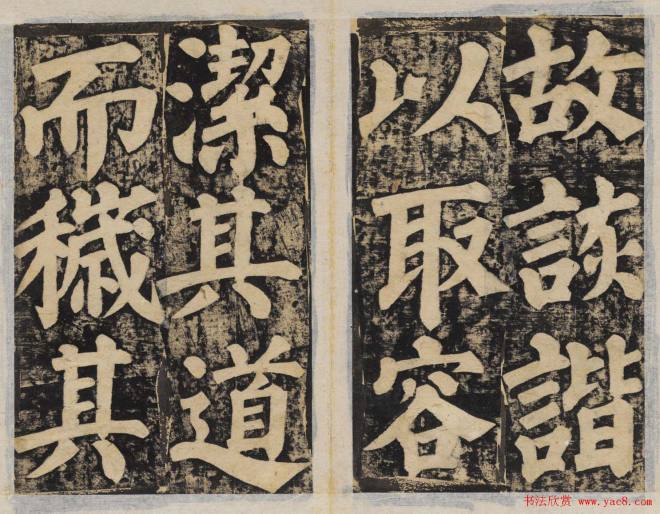 故談諧
以取容
潔其道
而穢其
书法欣赏 www.yac8.com